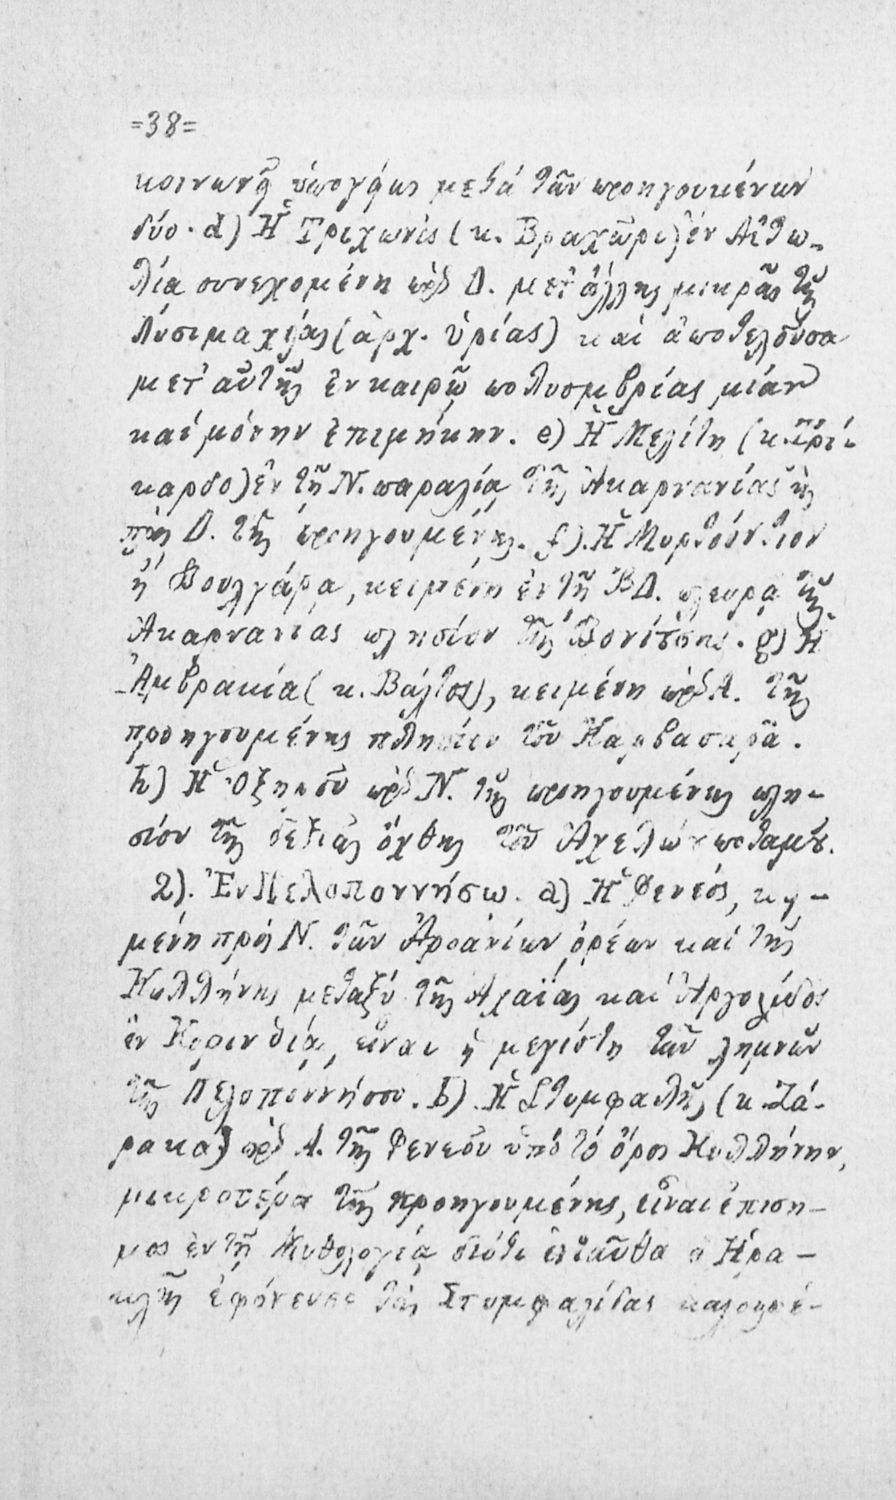 =38=
κοινωνεῖ ὑπογείως μετά τῶν προηγουμένων
δύο. d) Ἡ Τριχωνίς (κ. Βραχῶρι) ἐν Αἰτω-
λία συνεχομένη πρὸς Δ. μετ' ἄλλης μικρᾶς τῆς
Λυσιμαχίας (ἀρχ. ὑρίας) καί ἀποτελοῦσα
μετ' αὐτῆς ἐν καιρῷ πολυομβρίας μίαν
καί μόνην ἐπιμήκην. e) Ἡ Μελίτη (κ. Τρί-
καρδο) ἐν τῇ Ν. παραλία τῆς Ἀκαρνανίας
πρὸς Δ. τῆς προηγουμένης. f). Ἡ Μυρτούντιον
ἤ Βουλγάρα, κειμένη ἐν τῇ ΒΔ. πλευρᾷ τῆς
Ἀκαρνανίας πλησίον τῆς Βονίτσης. g) Ἡ
Ἀμβρακία (κ. Βάλτος), κειμένη πρὸς Α. τῆς
προηγουμένης πλησίον τοῦ Καρβασαρᾶ.
h) Ἡ Ὀζηροῦ πρὸς Ν. τῆς προηγουμένης πλη-
σίον τῆς δεξιᾶς ὄχθης τοῦ Ἀχελώου ποταμοῦ.
2). Ἐν Πελοποννήσω. a) Ἡ Φενεός, κει-
μένη πρὸς Ν. τῶν Ἀροανίων ὀρέων καί τῆς
Κυλλήνης μεταξύ τῆς Ἀχαΐας καί Ἀργολίδος
ἐν Κορινθίᾳ, εἶναι ἡ μεγίστη τῶν λιμνῶν
τῆς Πελοποννήσου. b). Ἡ Στυμφαλὶς (κ. Ζά-
ρακα) πρὸς Α. τῆς Φενεοῦ ὑπό τό ὄρος Κυλλήνην,
μικροτέρα τῆς προηγουμένης, εἶναι ἐπιση-
μος ἐν τῇ Μυθολογίᾳ διότι ἐνταῦθα ὁ Ἡρα-
κλῆς ἐφόνευσε τάς Στυμφαλίδας καλουμέ-